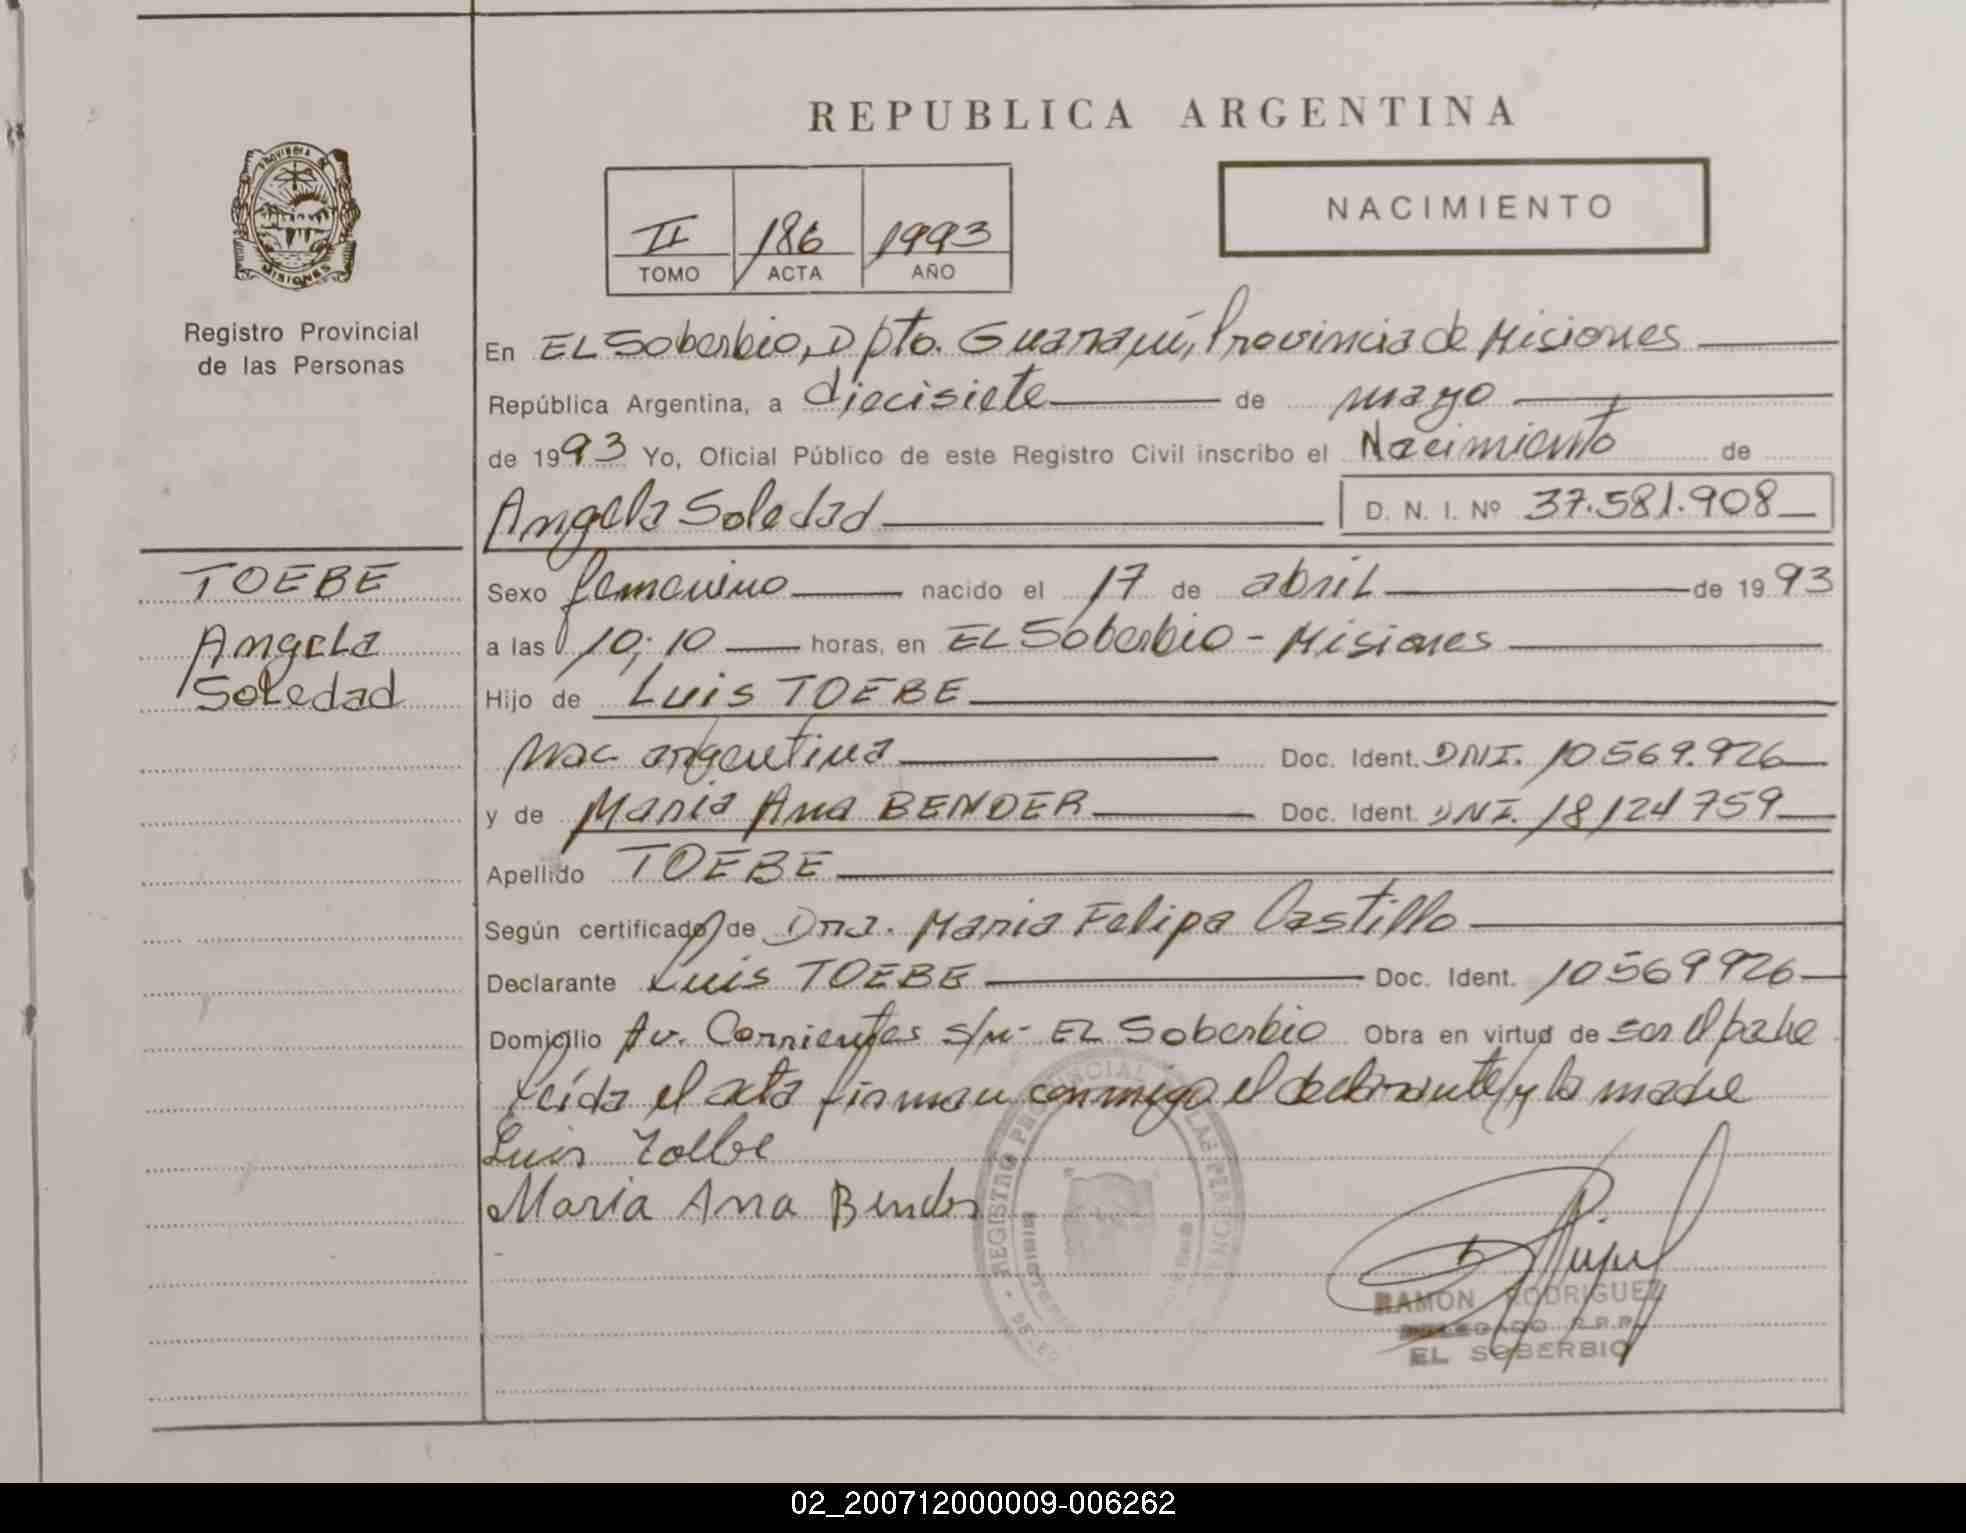 REPUBLICA ARGENTINA
PROVINCIA DE
MISIONES
Registro Provincial
de las Personas
II 186 1993
TOMO ACTA AÑO
NACIMIENTO
En EL Soberbio, Dpto. Guaraní, Provincia de Misiones
República Argentina, a diecisiete de mayo
de 1993 Yo, Oficial Público de este Registro Civil inscribo el Nacimiento de
Angela Soledad D. N. I. Nº 37.581.908
TOEBE
Angela
Soledad
Sexo femenino nacido el 17 de abril de 1993
a las 10:10 horas, en EL Soberbio - Misiones
Hijo de Luis TOEBE
Nac argentina Doc. Ident. DNI. 10569.926
y de Maria Ana BENDER Doc. Ident. DNI. 18124759
Apellido TOEBE
Según certificado de Dra. Maria Felipa Castillo
Declarante Luis TOEBE Doc. Ident. 10569926
Domicilio Av. Corrientes s/n- EL Soberbio Obra en virtud de ser el padre
Leída el acta firman conmigo el declarante y la madre
Luis Toebe
Maria Ana Bender
REGISTRO PROVINCIAL DE LAS PERSONAS
RAMON RODRIGUEZ
DELEGADO R.P.P.
EL SOBERBIO
02_200712000009-006262